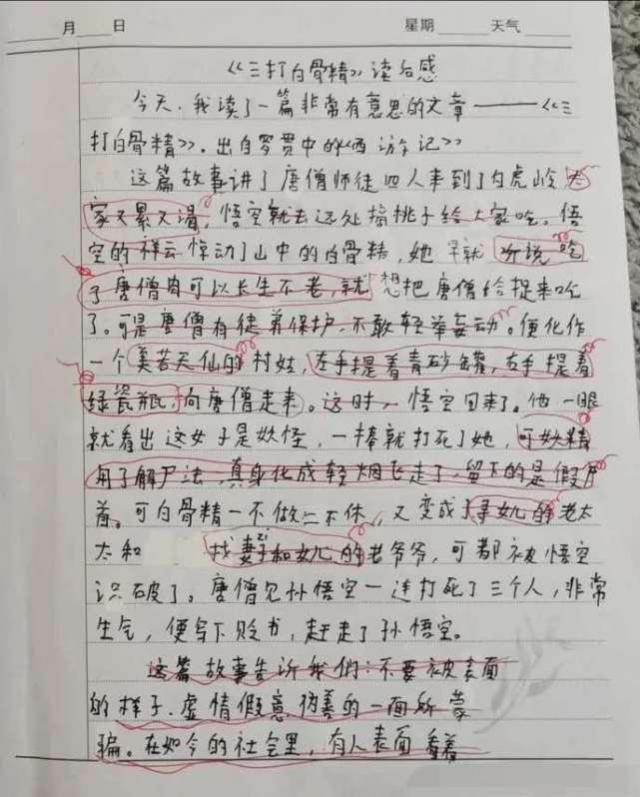 月 日 星期 天气
《三打白骨精》读后感
今天，我读了一篇非常有意思的文章——《三
打白骨精》，出自罗贯中的《西游记》
这篇故事讲了唐僧师徒四人来到了白虎岭 大
家又累又渴，悟空就去远处摘桃子给大家吃。悟
空的祥云惊动了山中的白骨精，她早就听说吃
了唐僧肉可以长生不老，就想把唐僧给捉来吃
了。可是唐僧有徒弟保护，不敢轻举妄动。便化作
一个美若天仙的村姑，左手提着青砂罐，右手提着
绿瓷瓶，向唐僧走来。这时，悟空回来了。他一眼
就看出这女子是妖怪，一棒就打死了她，可妖精
用了解尸法，真身化成轻烟飞走了，留下的是假尸
首。可白骨精一不做二不休，又变成了寻女儿的老太
太和 找妻子和女儿的老爷爷，可都被悟空
识破了。唐僧见孙悟空一连打死了三个人，非常
生气，便写下贬书，赶走了孙悟空。
这篇故事告诉我们：不要被表面
的样子、虚情假意伪善的一面所蒙
骗。在如今的社会里，有人表面看着